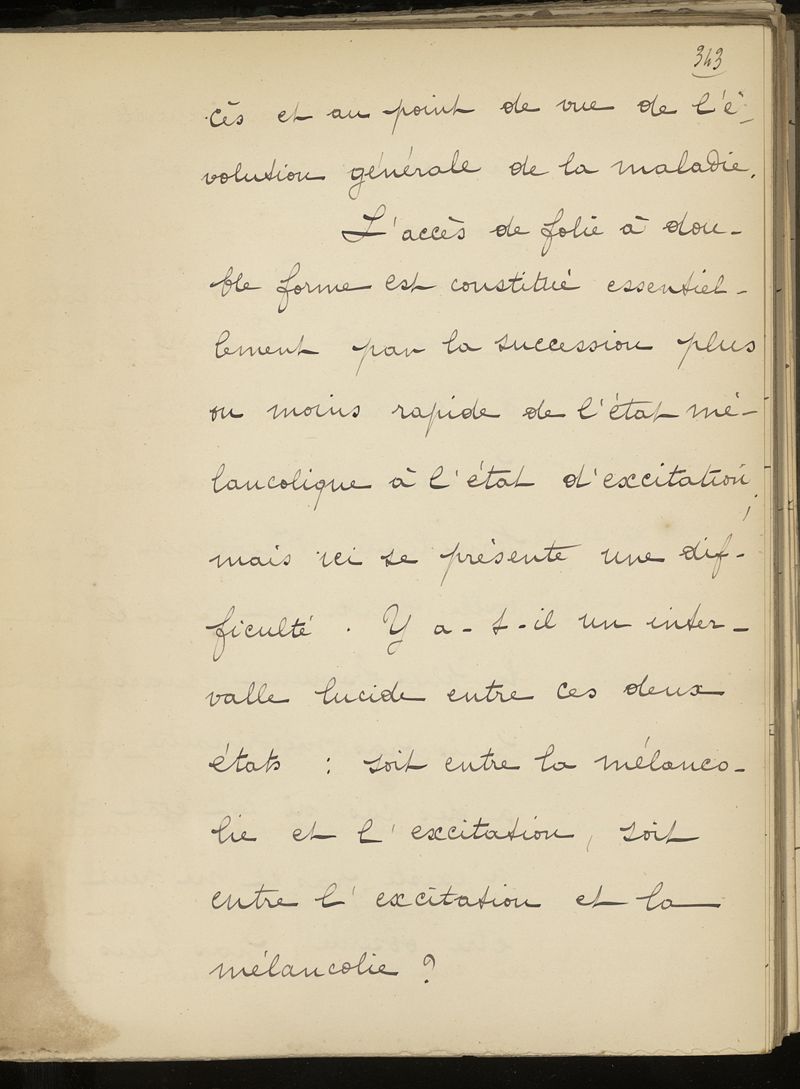 343
cès et au point de vue de l'é-
volution générale de la maladie.
L'accès de folie à dou-
ble forme est constitué essentiel-
lement par la succession plus
ou moins rapide de l'état mé-
lancolique à l'état d'excitation,
mais ici se présente une dif-
ficulté. Y a-t-il un inter-
valle lucide entre ces deux
états : soit entre la mélanco-
lie et l'excitation, soit
entre l'excitation et la
mélancolie ?